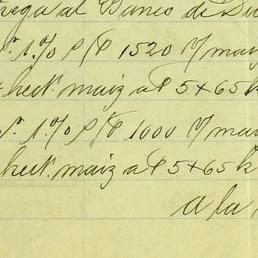 trega al Banco de
1% P/P 1520 7 maiz
hect. maiz a P 5 + 65 k
1% P/P 1000 7 maiz
hect. maiz a P 5 + 65 k
a la